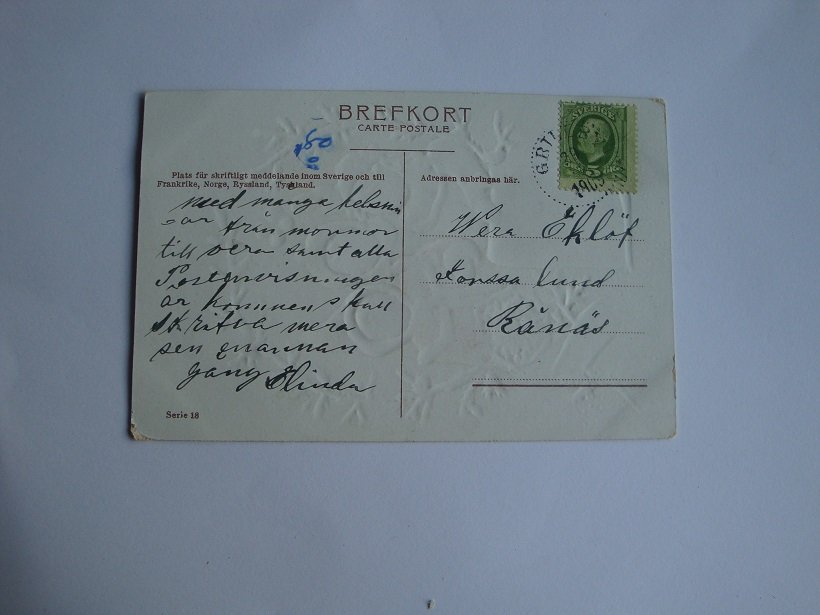 BREFKORT
CARTE POSTALE
Plats för skriftligt meddelande inom Sverige och till
Frankrike, Norge, Ryssland, Tyskland.
Adressen anbringas här.
SVERIGE
5
GRI
190
50
med många helsnin
=ar från mormor
till vera samt alla
Postenvisningen
är kommen skall
skrifva mera
sen enannan
gång Elinda
Wera Eklöf
lund
Rånäs
Serie 18